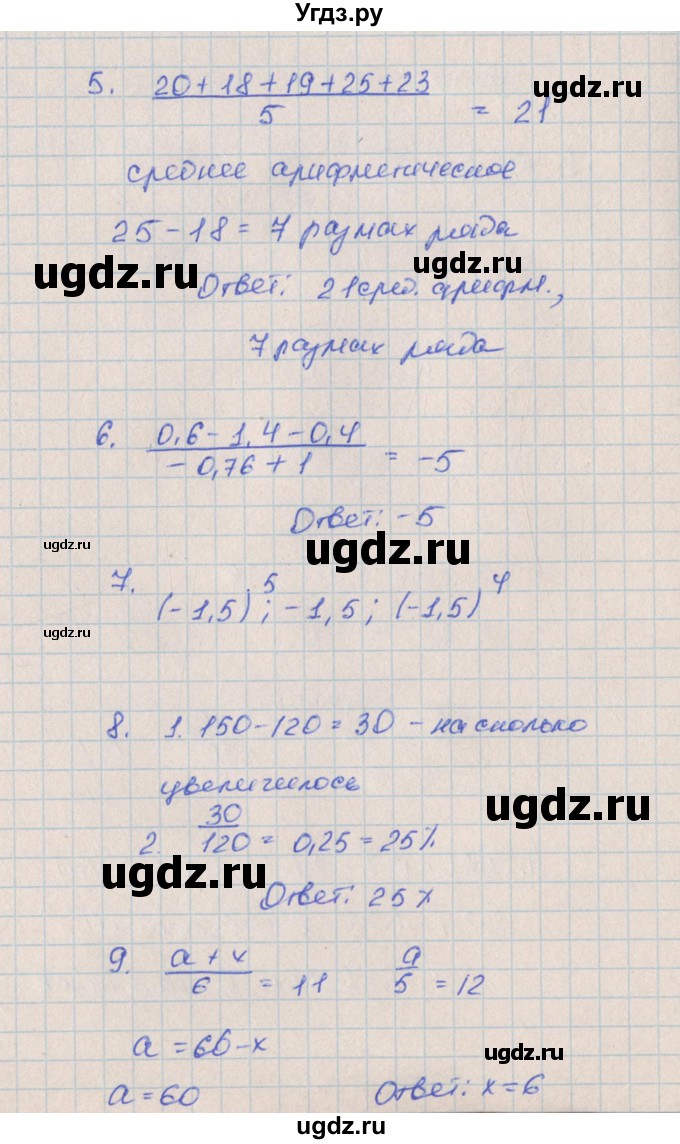 Угдз.ру
5. (20+18+19+25+23)/5 = 21
ugdz.ru
среднее арифметическое
25-18=7 размах ряда
ugdz.ru
ugdz.ru
Ответ: 21 сред. арифм.,
7 размах ряда
6. (0,6-1,4-0,4)/(-0,76+1) = -5
Ответ: -5
ugdz.ru
ugdz.ru
7. (-1,5)⁵; -1,5; (-1,5)⁴
ugdz.ru
8. 1. 150-120=30 - на сколько
увеличилось
ugdz.ru
2. 30/120 = 0,25 = 25%
ugdz.ru
Ответ: 25%
9. (a+x)/6 = 11 a/5 = 12
a=66-x
ugdz.ru
a=60 Ответ: x=6
ugdz.ru